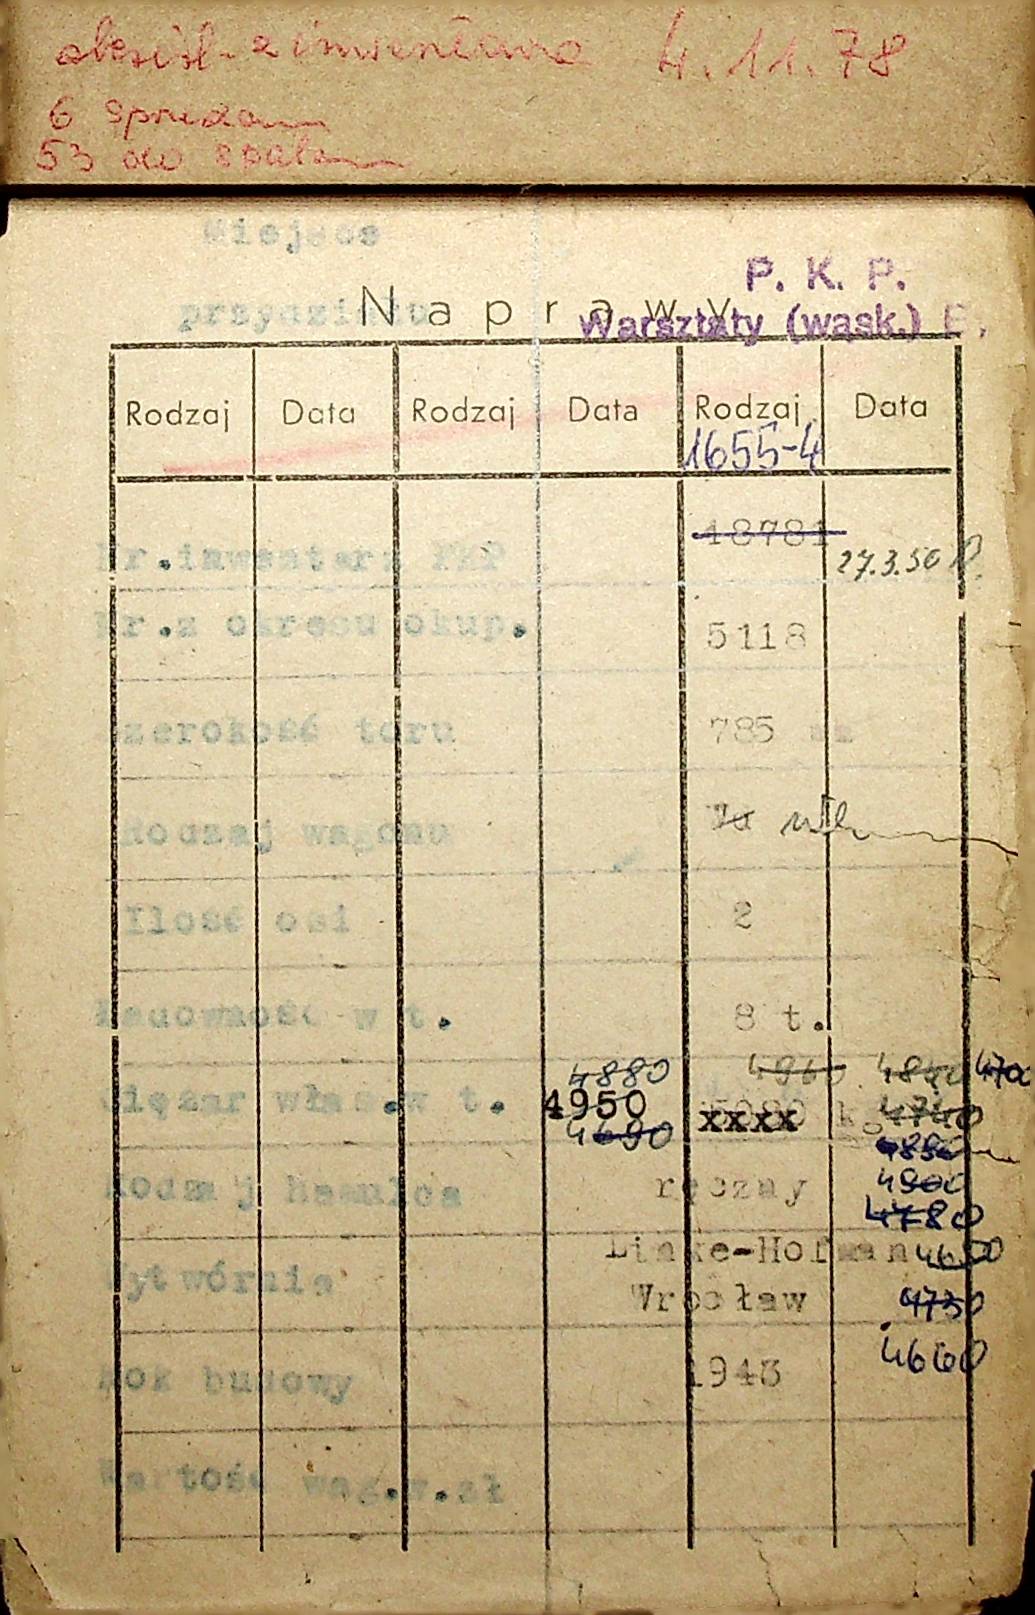 4.11.78
6
53 do
Miejsce
P. K. P.
przydziału
Naprawy
Warsztaty (wąsk.) B.
Rodzaj Data Rodzaj Data Rodzaj Data
1655-4
18781
Nr.inwentarz PKP 27.3.50
Nr.z okresu okup. 5118
Szerokość toru 785 mm
Rodzaj wagonu
Ilość osi 2
Ładowność w t. 8 t.
4880 4960 4840 470
Ciężar włas.w t. 4950 xxxx kg 4740
4690
4900
Rodzaj hamulca ręczny
4780
Linke-Hofman 4650
Wytwórnia Wrocław 4730
4660
Rok budowy 1943
Wartość wag.w.zł